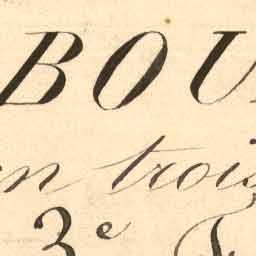 BOU
en trois
3e